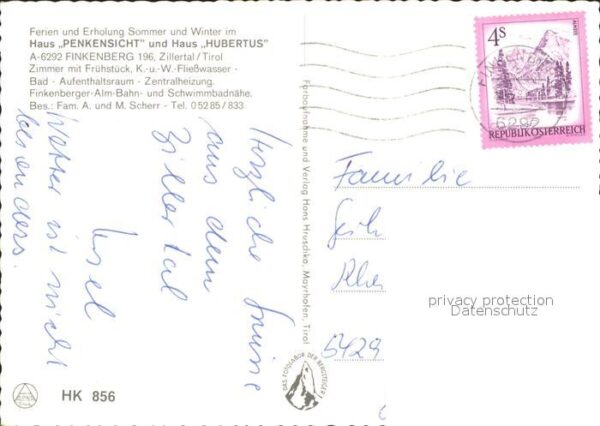 Ferien und Erholung Sommer und Winter im
Haus „PENKENSICHT" und Haus „HUBERTUS"
A-6292 FINKENBERG 196, Zillertal / Tirol
Zimmer mit Frühstück, K.-u.-W.-Fließwasser -
Bad - Aufenthaltsraum - Zentralheizung.
Finkenberger-Alm-Bahn- und Schwimmbadnähe.
Bes.: Fam. A. und M. Scherr - Tel. 05285 / 833
Herzliche Grüsse
aus dem
Zillertal
Wetter ist nicht
besonders.
Farbaufnahme und Verlag Hans Hruschka, Mayrhofen, Tirol
DAS FOTOLABOR DER BERGSTEIGER
HK 856
4S
REPUBLIK ÖSTERREICH
Familie
5429
privacy protection
Datenschutz